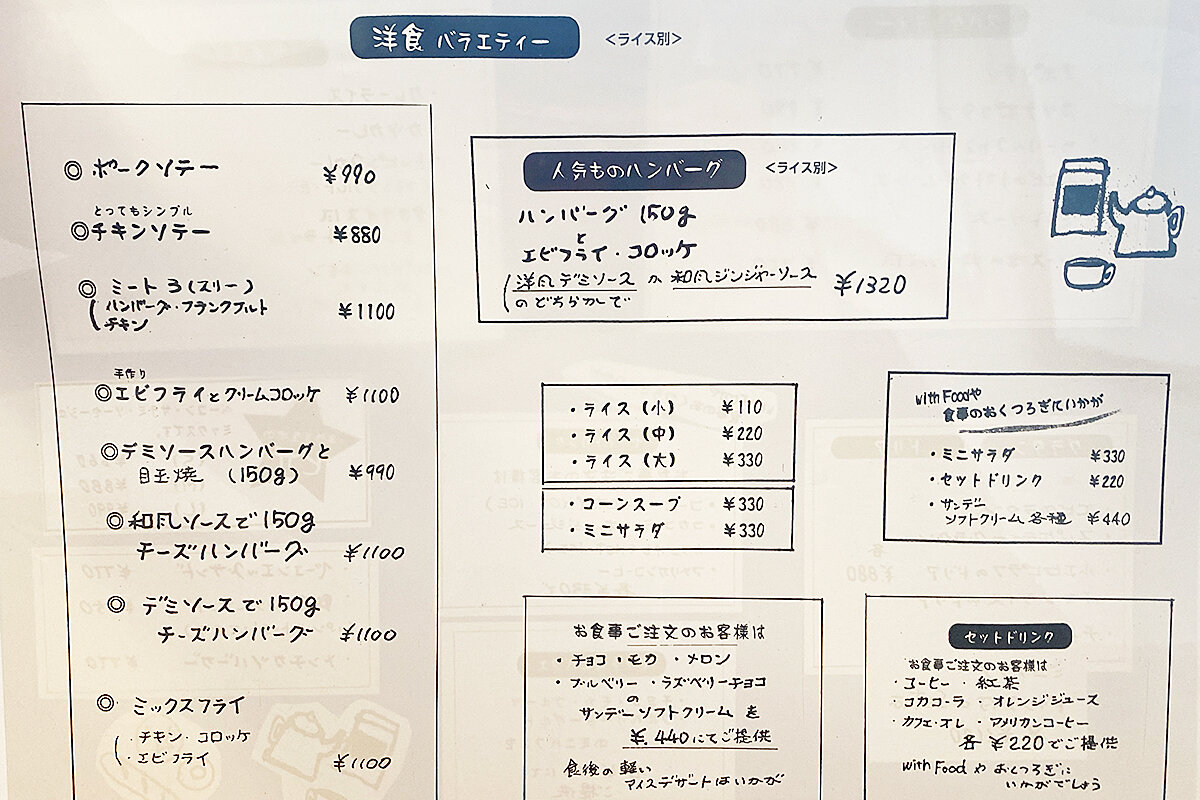 洋食 バラエティー <ライス別>
◎ ポークソテー ¥990
とってもシンプル
◎チキンソテー ¥880
◎ ミート3(スリー)
(ハンバーグ・フランクフルト
チキン ¥1100
手作り
◎エビフライとクリームコロッケ ¥1100
◎デミソースハンバーグと
目玉焼 (150g) ¥990
◎和風ソースで150g
チーズハンバーグ ¥1100
◎ デミソースで150g
チーズハンバーグ ¥1100
◎ ミックスフライ
(・チキン・コロッケ
・エビフライ ¥1100
人気ものハンバーグ <ライス別>
ハンバーグ 150g
と
エビフライ・コロッケ
(洋風デミソース か 和風ジンジャーソース
のどちらかして ¥1320
・ライス(小) ¥110
・ライス(中) ¥220
・ライス(大) ¥330
・コーンスープ ¥330
・ミニサラダ ¥330
with Foodや
食事のおくつろぎにいかが
・ミニサラダ ¥330
・セットドリンク ¥220
・サンデー
ソフトクリーム各種 ¥440
お食事ご注文のお客様は
・チョコ・モカ・メロン
・ブルベリー・ラズベリーチョコ
の
サンデーソフトクリームを
¥.440にてご提供
食後の軽い
アイスデザートはいかが
セットドリンク
お食事ご注文のお客様は
・コーヒー・紅茶
・コカコーラ・オレンジジュース
・カフェ・オレ・アメリカンコーヒー
各 ¥220でご提供
with Food や おくつろぎに
いかがでしょう